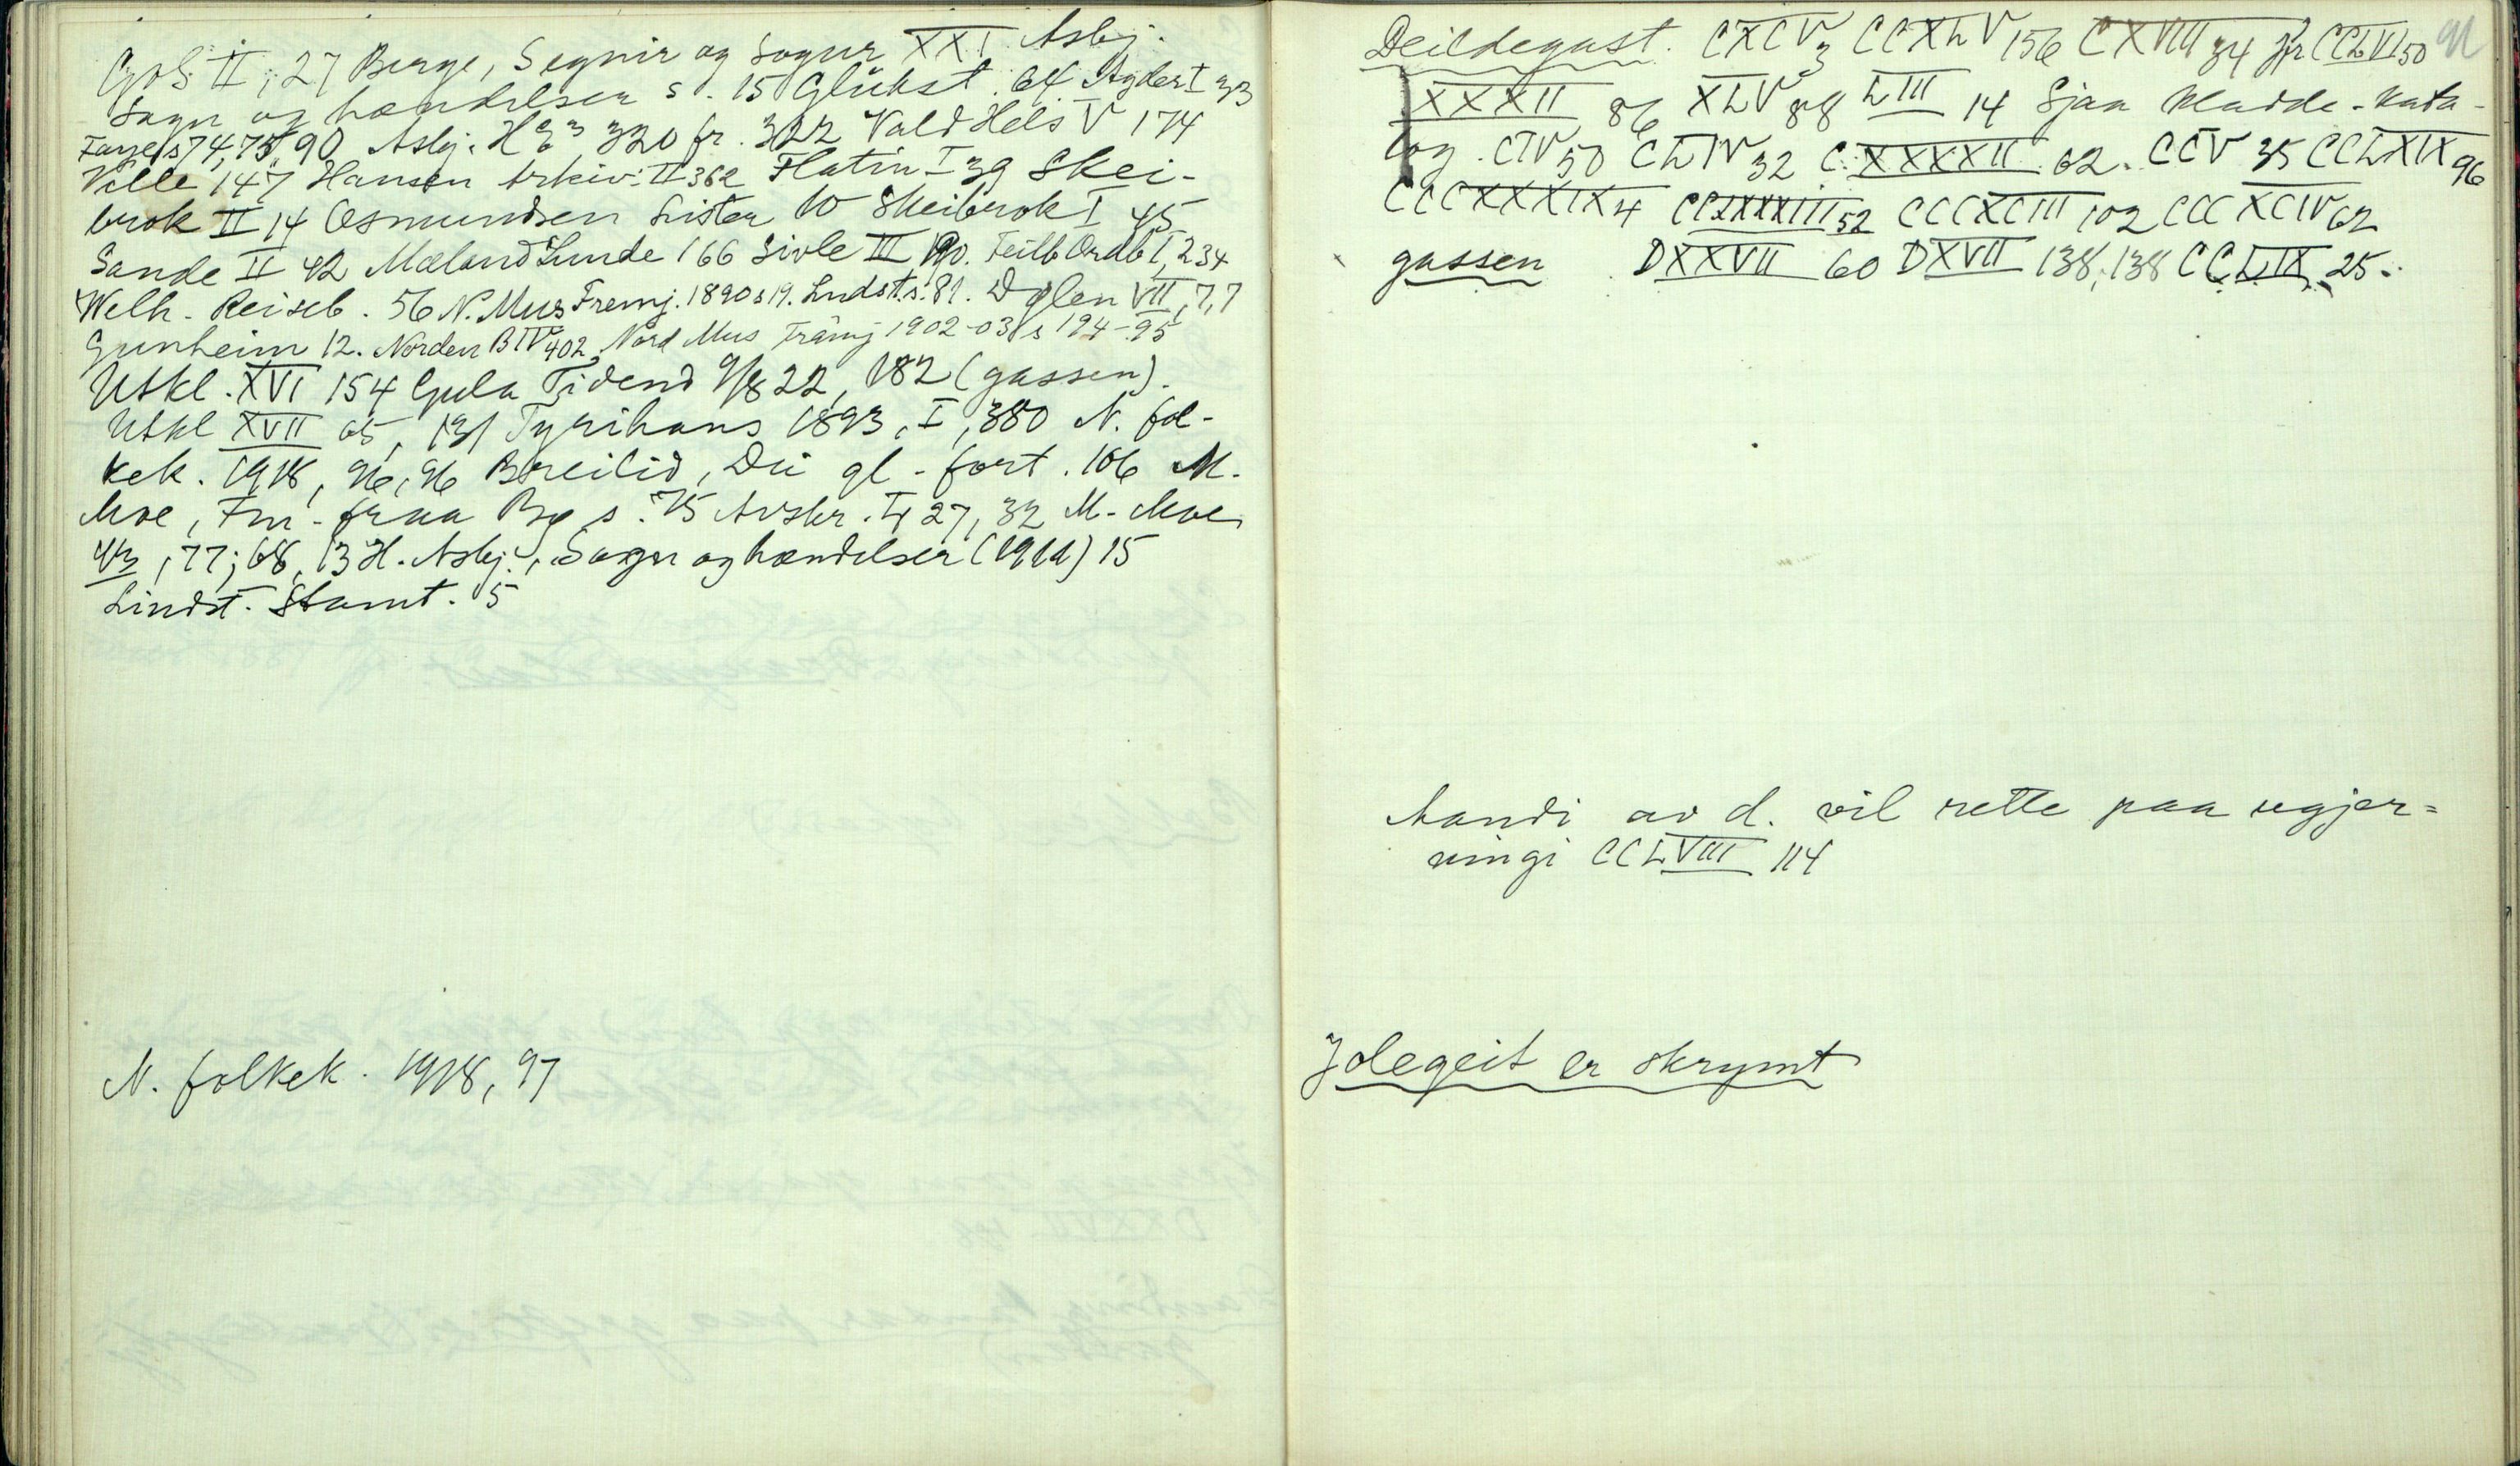 GoS II, 27 Berge, Segnir og Sogur XXI Asbj.
Sagn og hændelser s. 15 Glükst. 64 Agder I 33
Faye s 74, 75, 90 Asbj. HE³ 320 fr. 322 Vald Hels V 174
Ville 147 Hansen Arkiv: II 362 Flatin I 39 Skei-
brok II 14 Osmundsen Lister 10 Skeibrok I 45
Sande II 42 Mæland Lunde 166 Sivle III 190. Feilb Ordb I, 234
Welh. Reiseb. 56 N. Mus Fremj. 1890 s 19. Lndst. s. 81. Dølen VII, 7, 7
Gunheim 12. Norden B IV 402. Nord Mus Främj 1902-03 s 194-95
Utkl. XVI 154 Gula Tidend 9/8 22, 182 (gassen).
Utkl XVII 65, 131 Tyrihans 1893, I, 380 N. fol-
kek. 1918, 96, 96 Breilid, Dei gl. fort. 106 M.
Moe, Fm. fraa Bg s. 75 Avskr. I, 27, 32 M. Moe
, 77; 68, 13 H. Asbj., Sagn og hændelser (1911) 15
Lindst. Stamt. 5
N. folkek. 1918, 97
91
Deildegast. CXCV 3 CCXLV 156 CXVIII 34 Jfr CCLVI 50
XXXII 86 XLV 88 LIII 14 Sjaa kladde-kata-
log. CIV 50 CLIV 32 CXXXXII 62. CCV 35 CCLXIX 96
CCCXXXIX 4 CCLXXXIII 52 CCCXCIII 102 CCCXCIV 62
gassen DXXVII 60 DXVII 138, 138 CCLIX 25.
Aandi av d. vil rette paa ugjer-
ningi CCLVIII 114
Jolegeit er skrymt